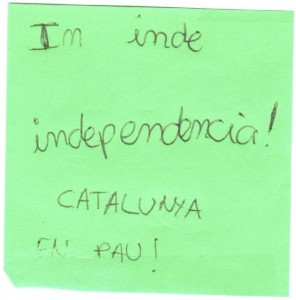 Im inde
independència!
CATALUNYA
EN PAU!